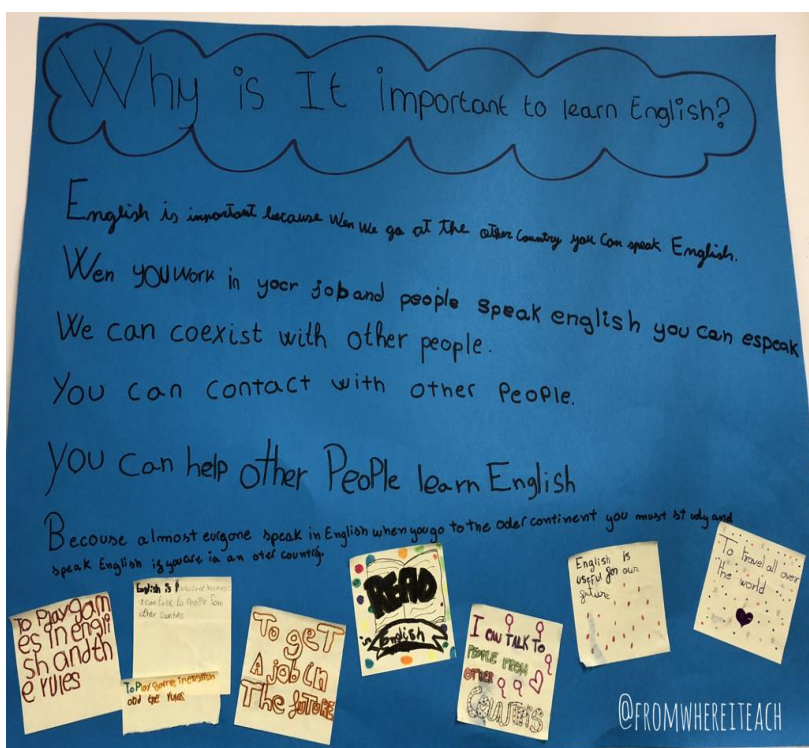 Why is It important to learn English?
English is important because Wen We go at the other country you can speak English.
Wen you work in yoer job and people speak english you can espeak
We can coexist with other people.
You can contact with other People.
You can help other People learn English
Becouse almost eurgone speak in English when you go to the oder continent you must study and
speak English if you are in an oter country.
To Play gam
es in engli
sh and th
e rules
English is
I can talk to People from
other
To Play game in english
and the rules
To geT
A job in
The future
READ
in English
I can TALK TO
PEOPLE FROM
other
English is
useful for our
future
To travel all over
the world
@FROMWHEREITEACH